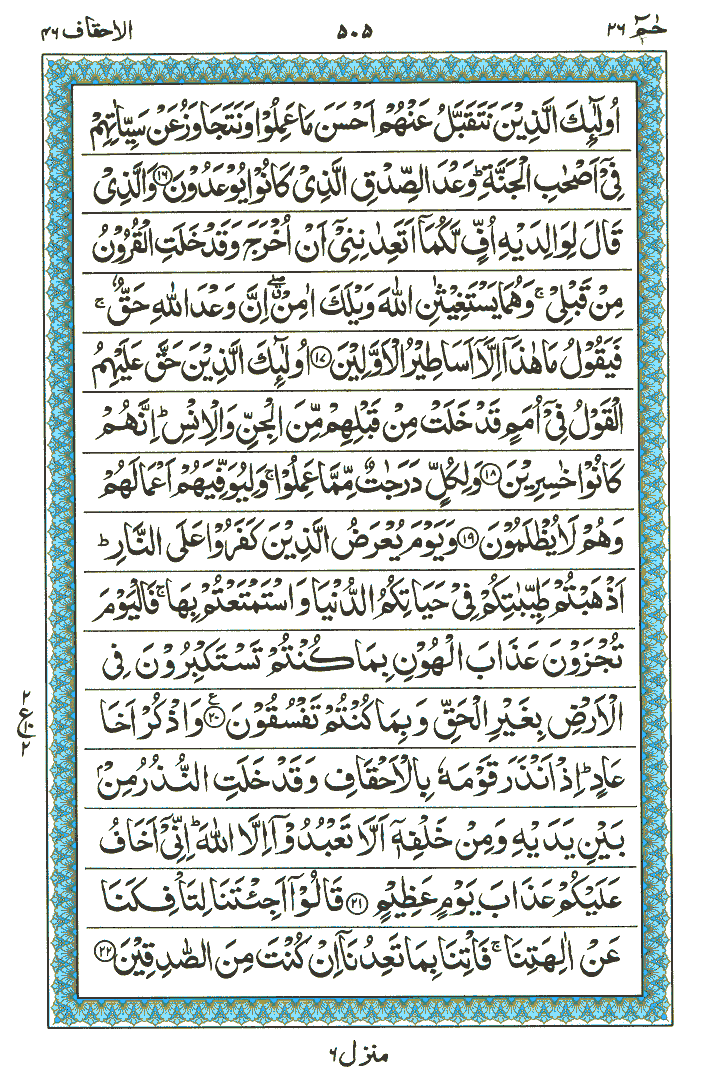 حٰمٓ ٢٦ ٥٠٥ الاحقاف ٤٦
اُولٰٓئِكَ الَّذِيْنَ نَتَقَبَّلُ عَنْهُمْ اَحْسَنَ مَا عَمِلُوْا وَنَتَجَاوَزُ عَنْ سَيِّاٰتِهِمْ
فِيْۤ اَصْحٰبِ الْجَنَّةِ ؕ وَعْدَ الصِّدْقِ الَّذِيْ كَانُوْا يُوْعَدُوْنَ ۝١٦ وَالَّذِيْ
قَالَ لِوَالِدَيْهِ اُفٍّ لَّكُمَاۤ اَتَعِدٰنِنِيْۤ اَنْ اُخْرَجَ وَقَدْ خَلَتِ الْقُرُوْنُ
مِنْ قَبْلِيْ ۚ وَهُمَا يَسْتَغِيْثٰنِ اللّٰهَ وَيْلَكَ اٰمِنْ ۖ اِنَّ وَعْدَ اللّٰهِ حَقٌّ ۚ
فَيَقُوْلُ مَا هٰذَاۤ اِلَّاۤ اَسَاطِيْرُ الْاَوَّلِيْنَ ۝١٧ اُولٰٓئِكَ الَّذِيْنَ حَقَّ عَلَيْهِمُ
الْقَوْلُ فِيْۤ اُمَمٍ قَدْ خَلَتْ مِنْ قَبْلِهِمْ مِّنَ الْجِنِّ وَالْاِنْسِ ؕ اِنَّهُمْ
كَانُوْا خٰسِرِيْنَ ۝١٨ وَلِكُلٍّ دَرَجٰتٌ مِّمَّا عَمِلُوْا ۚ وَلِيُوَفِّيَهُمْ اَعْمَالَهُمْ
وَهُمْ لَا يُظْلَمُوْنَ ۝١٩ وَيَوْمَ يُعْرَضُ الَّذِيْنَ كَفَرُوْا عَلَى النَّارِ ؕ
اَذْهَبْتُمْ طَيِّبٰتِكُمْ فِيْ حَيَاتِكُمُ الدُّنْيَا وَاسْتَمْتَعْتُمْ بِهَا ۚ فَالْيَوْمَ
تُجْزَوْنَ عَذَابَ الْهُوْنِ بِمَا كُنْتُمْ تَسْتَكْبِرُوْنَ فِي
الْاَرْضِ بِغَيْرِ الْحَقِّ وَبِمَا كُنْتُمْ تَفْسُقُوْنَ ۝٢٠ ع وَاذْكُرْ اَخَا
٢
ع
١٠
٢
عَادٍ ؕ اِذْ اَنْذَرَ قَوْمَهٗ بِالْاَحْقَافِ وَقَدْ خَلَتِ النُّذُرُ مِنْۢ
بَيْنِ يَدَيْهِ وَمِنْ خَلْفِهٖۤ اَلَّا تَعْبُدُوْۤا اِلَّا اللّٰهَ ؕ اِنِّيْۤ اَخَافُ
عَلَيْكُمْ عَذَابَ يَوْمٍ عَظِيْمٍ ۝٢١ قَالُوْۤا اَجِئْتَنَا لِتَاْفِكَنَا
عَنْ اٰلِهَتِنَا ۚ فَاْتِنَا بِمَا تَعِدُنَاۤ اِنْ كُنْتَ مِنَ الصّٰدِقِيْنَ ۝٢٢
منزل ٦